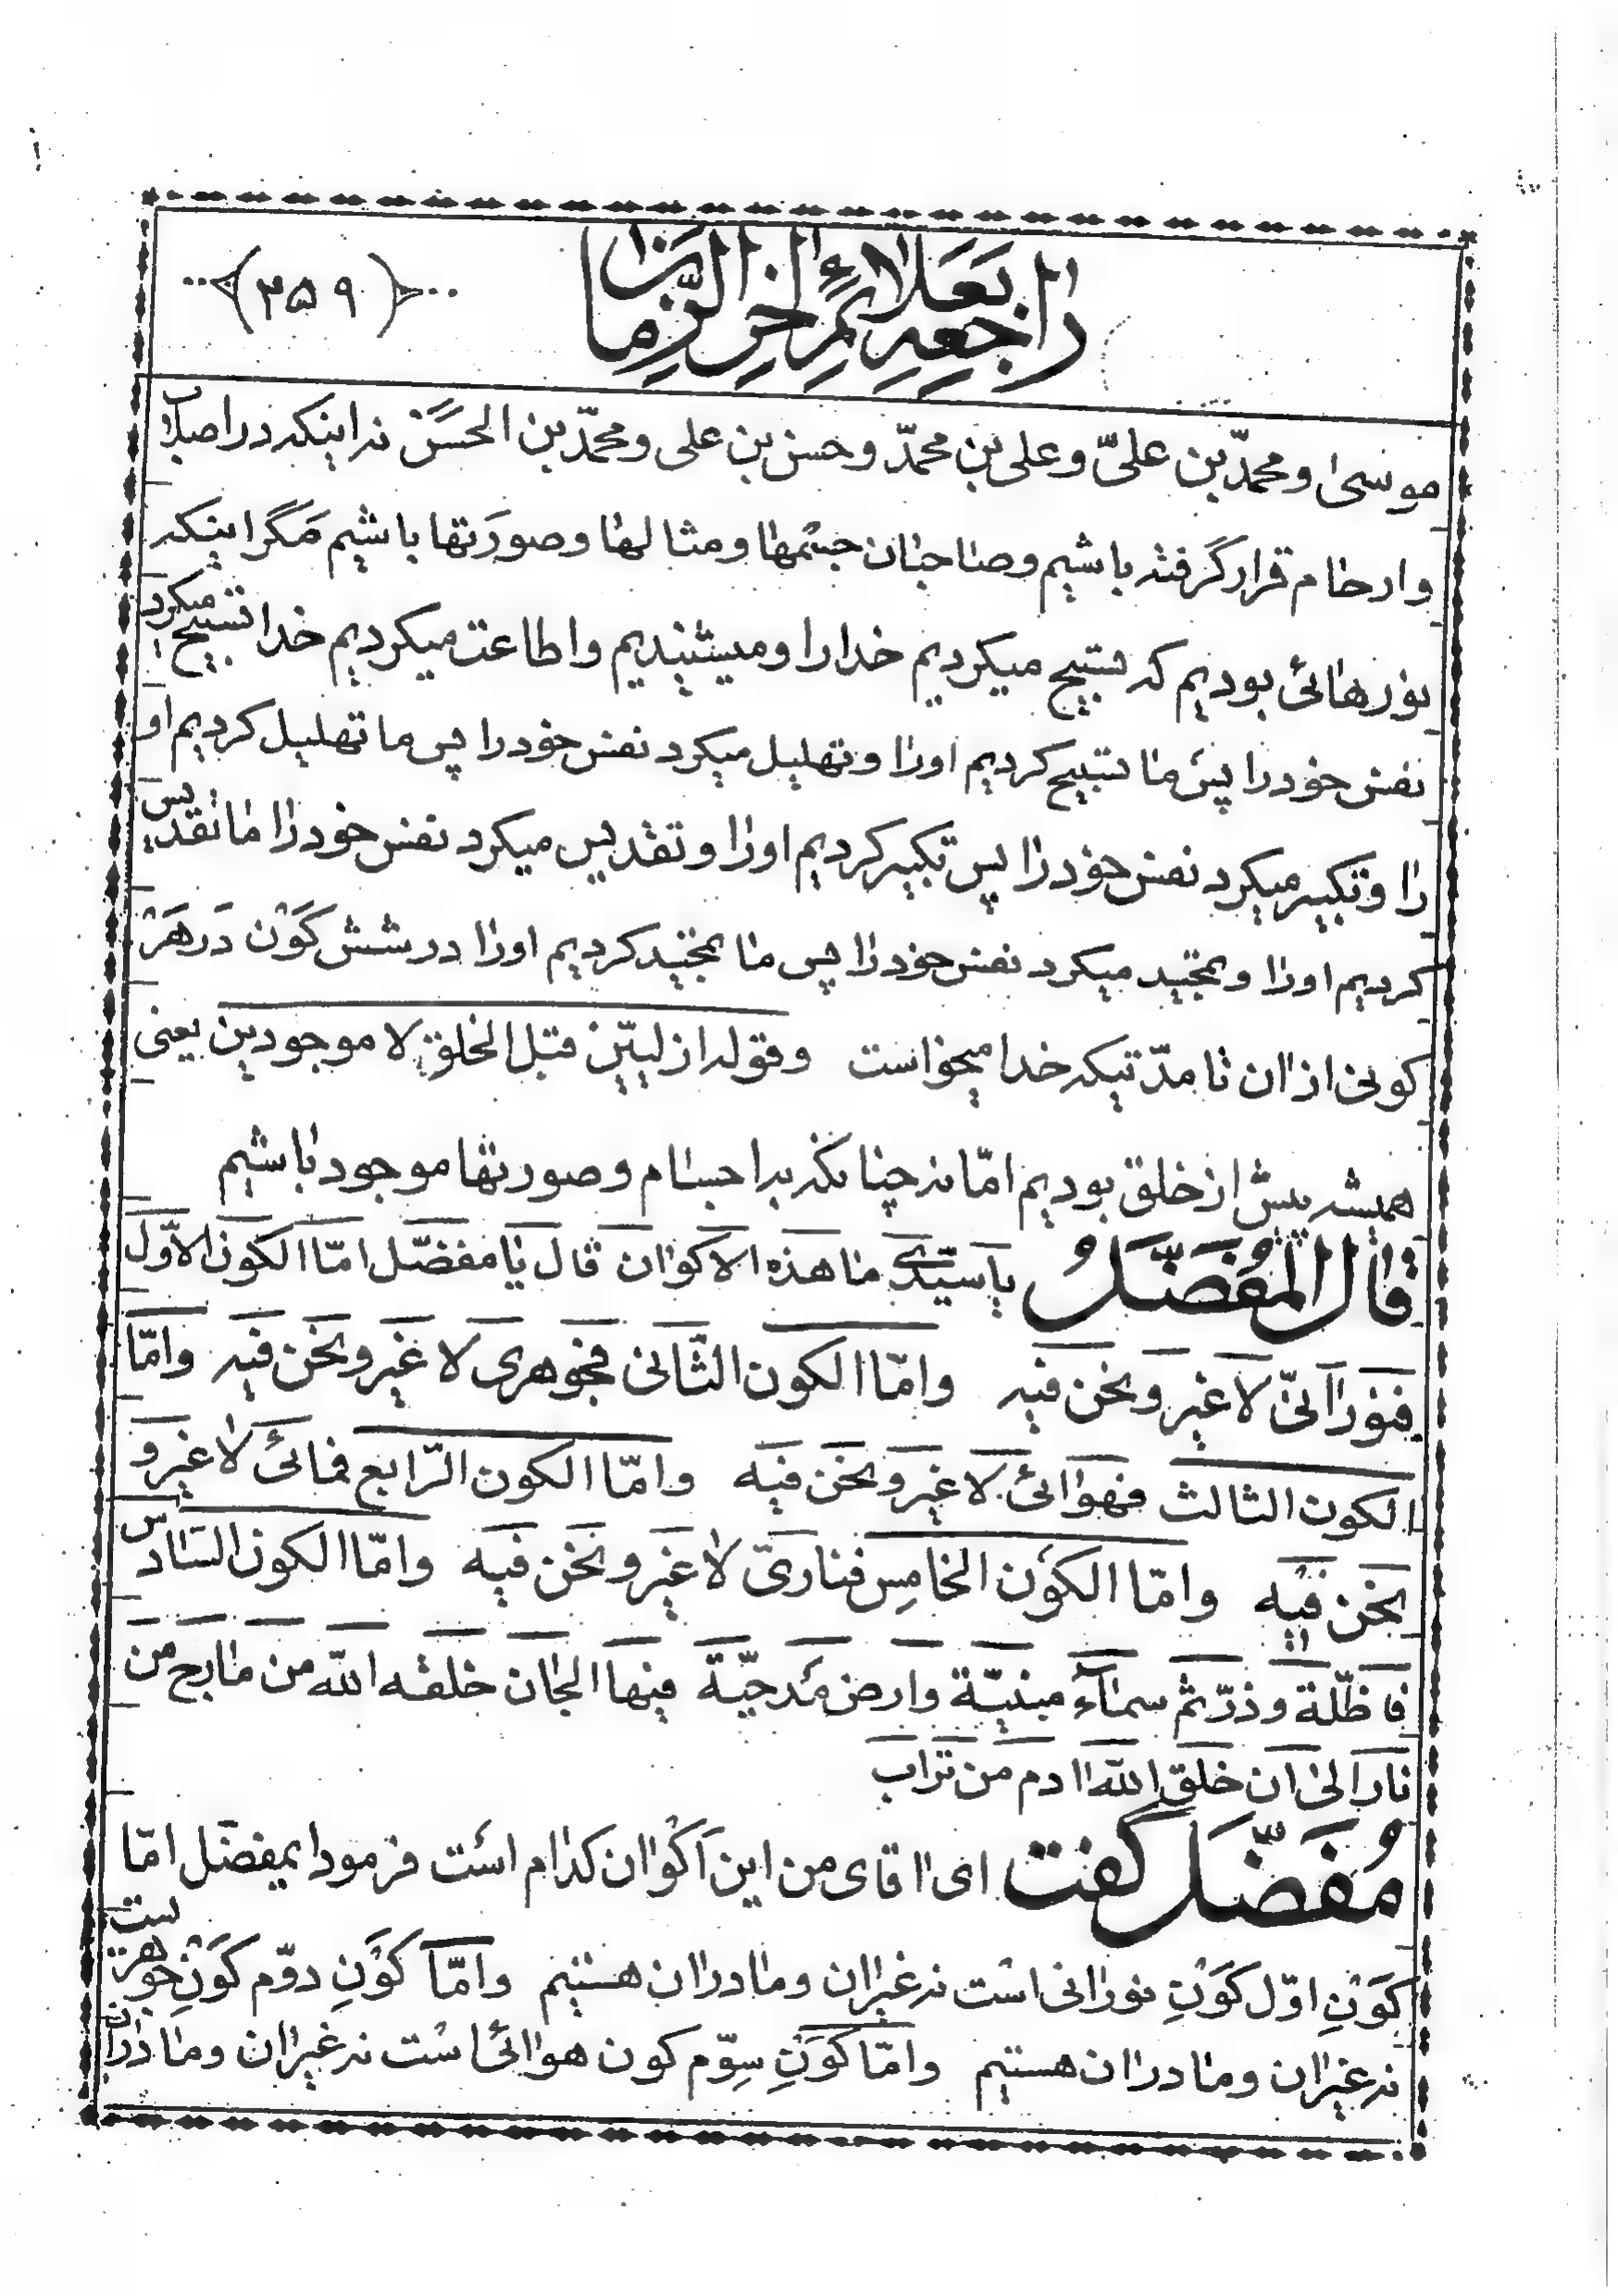 راجعه بعلائم اخر الزمان
(۳۵۹)
موسی و محمّد بن علیّ و علی بن محمّد و حسن بن علی و محمّد بن الحسَن نه اینکه در اصلاب
و ارحام قرار گرفته باشیم و صاحبان جسمها و مثالها و صورَتها باشیم مَگر اینکه
نورهائی بودیم که تسبیح میکردیم خدا را و میشنیدیم و اطاعت میکردیم خدا تسبیح میکرد
نفس خود را پس ما تسبیح کردیم او را و تهلیل میکرد نفس خود را پس ما تهلیل کردیم او
را و تکبیر میکرد نفس خود را پس تکبیر کردیم او را و تقدیس میکرد نفس خود را ما تقدیس
کردیم او را و تمجید میکرد نفس خود را پس ما تمجید کردیم او را در شش کَوْن دَر هَرْ
کونی از ان تا مدّتیکه خدا میخواست وقوله ازلیّین قبل الخلق لا موجودین یعنی
همیشه پیش از خلق بودیم امّا نه چنانکه به اجسام و صورتها موجود باشیم
قال المُفضّلُ یا سیّدی ما هذه الاکوان قال یا مفضّل امّا الکون الاوّل
فنورانیّ لا غیر و نحن فیه وامّا الکون الثّانی فجوهری لا غیر و نحن فیه وامّا
الکون الثالث فهوائیّ لا غیر و نحن فیه وامّا الکون الرّابع فمائیّ لا غیر و
نحن فیه وامّا الکون الخامِس فناریّ لا غیر و نحن فیه وامّا الکون السّادس
فاظلّة وذرّ ثمّ سماءٌ مبنیّة وارض مَدحیّة فیها الجان خلقه الله من مارج من
نار الی ان خلق الله ادم من تراب
مُفضّل گفت ای اقای من این اَکْوان کدام است فرمود ایمفضّل امّا
کَوْنِ اوّل کَوْنِ نورانی است نه غیر ان و ما در ان هستیم وامّا کَوْنِ دوّم کَوْنِ جوهریست
نه غیر ان و ما در ان هستیم وامّا کَوْنِ سِوّم کون هوائی است نه غیر ان و ما در ان